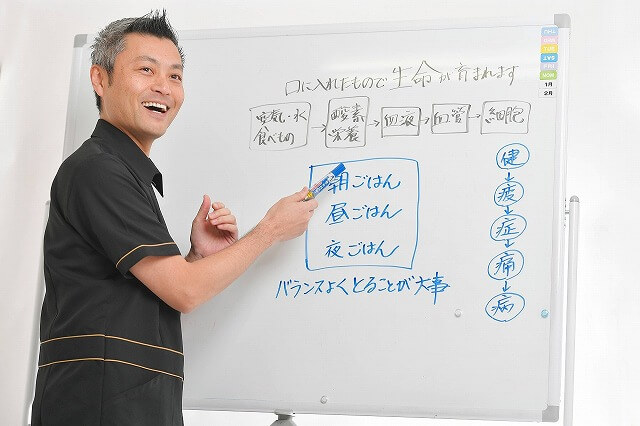 口に入れたもので生命が育まれます
空気・水
食べもの
→
酸素
栄養
→
血液
→
血管
→
細胞
朝ごはん
昼ごはん
夜ごはん
バランスよくとることが大事
健
↓
疲
↓
症
↓
痛
↓
病
SAT
SUN
MON
1月
2月